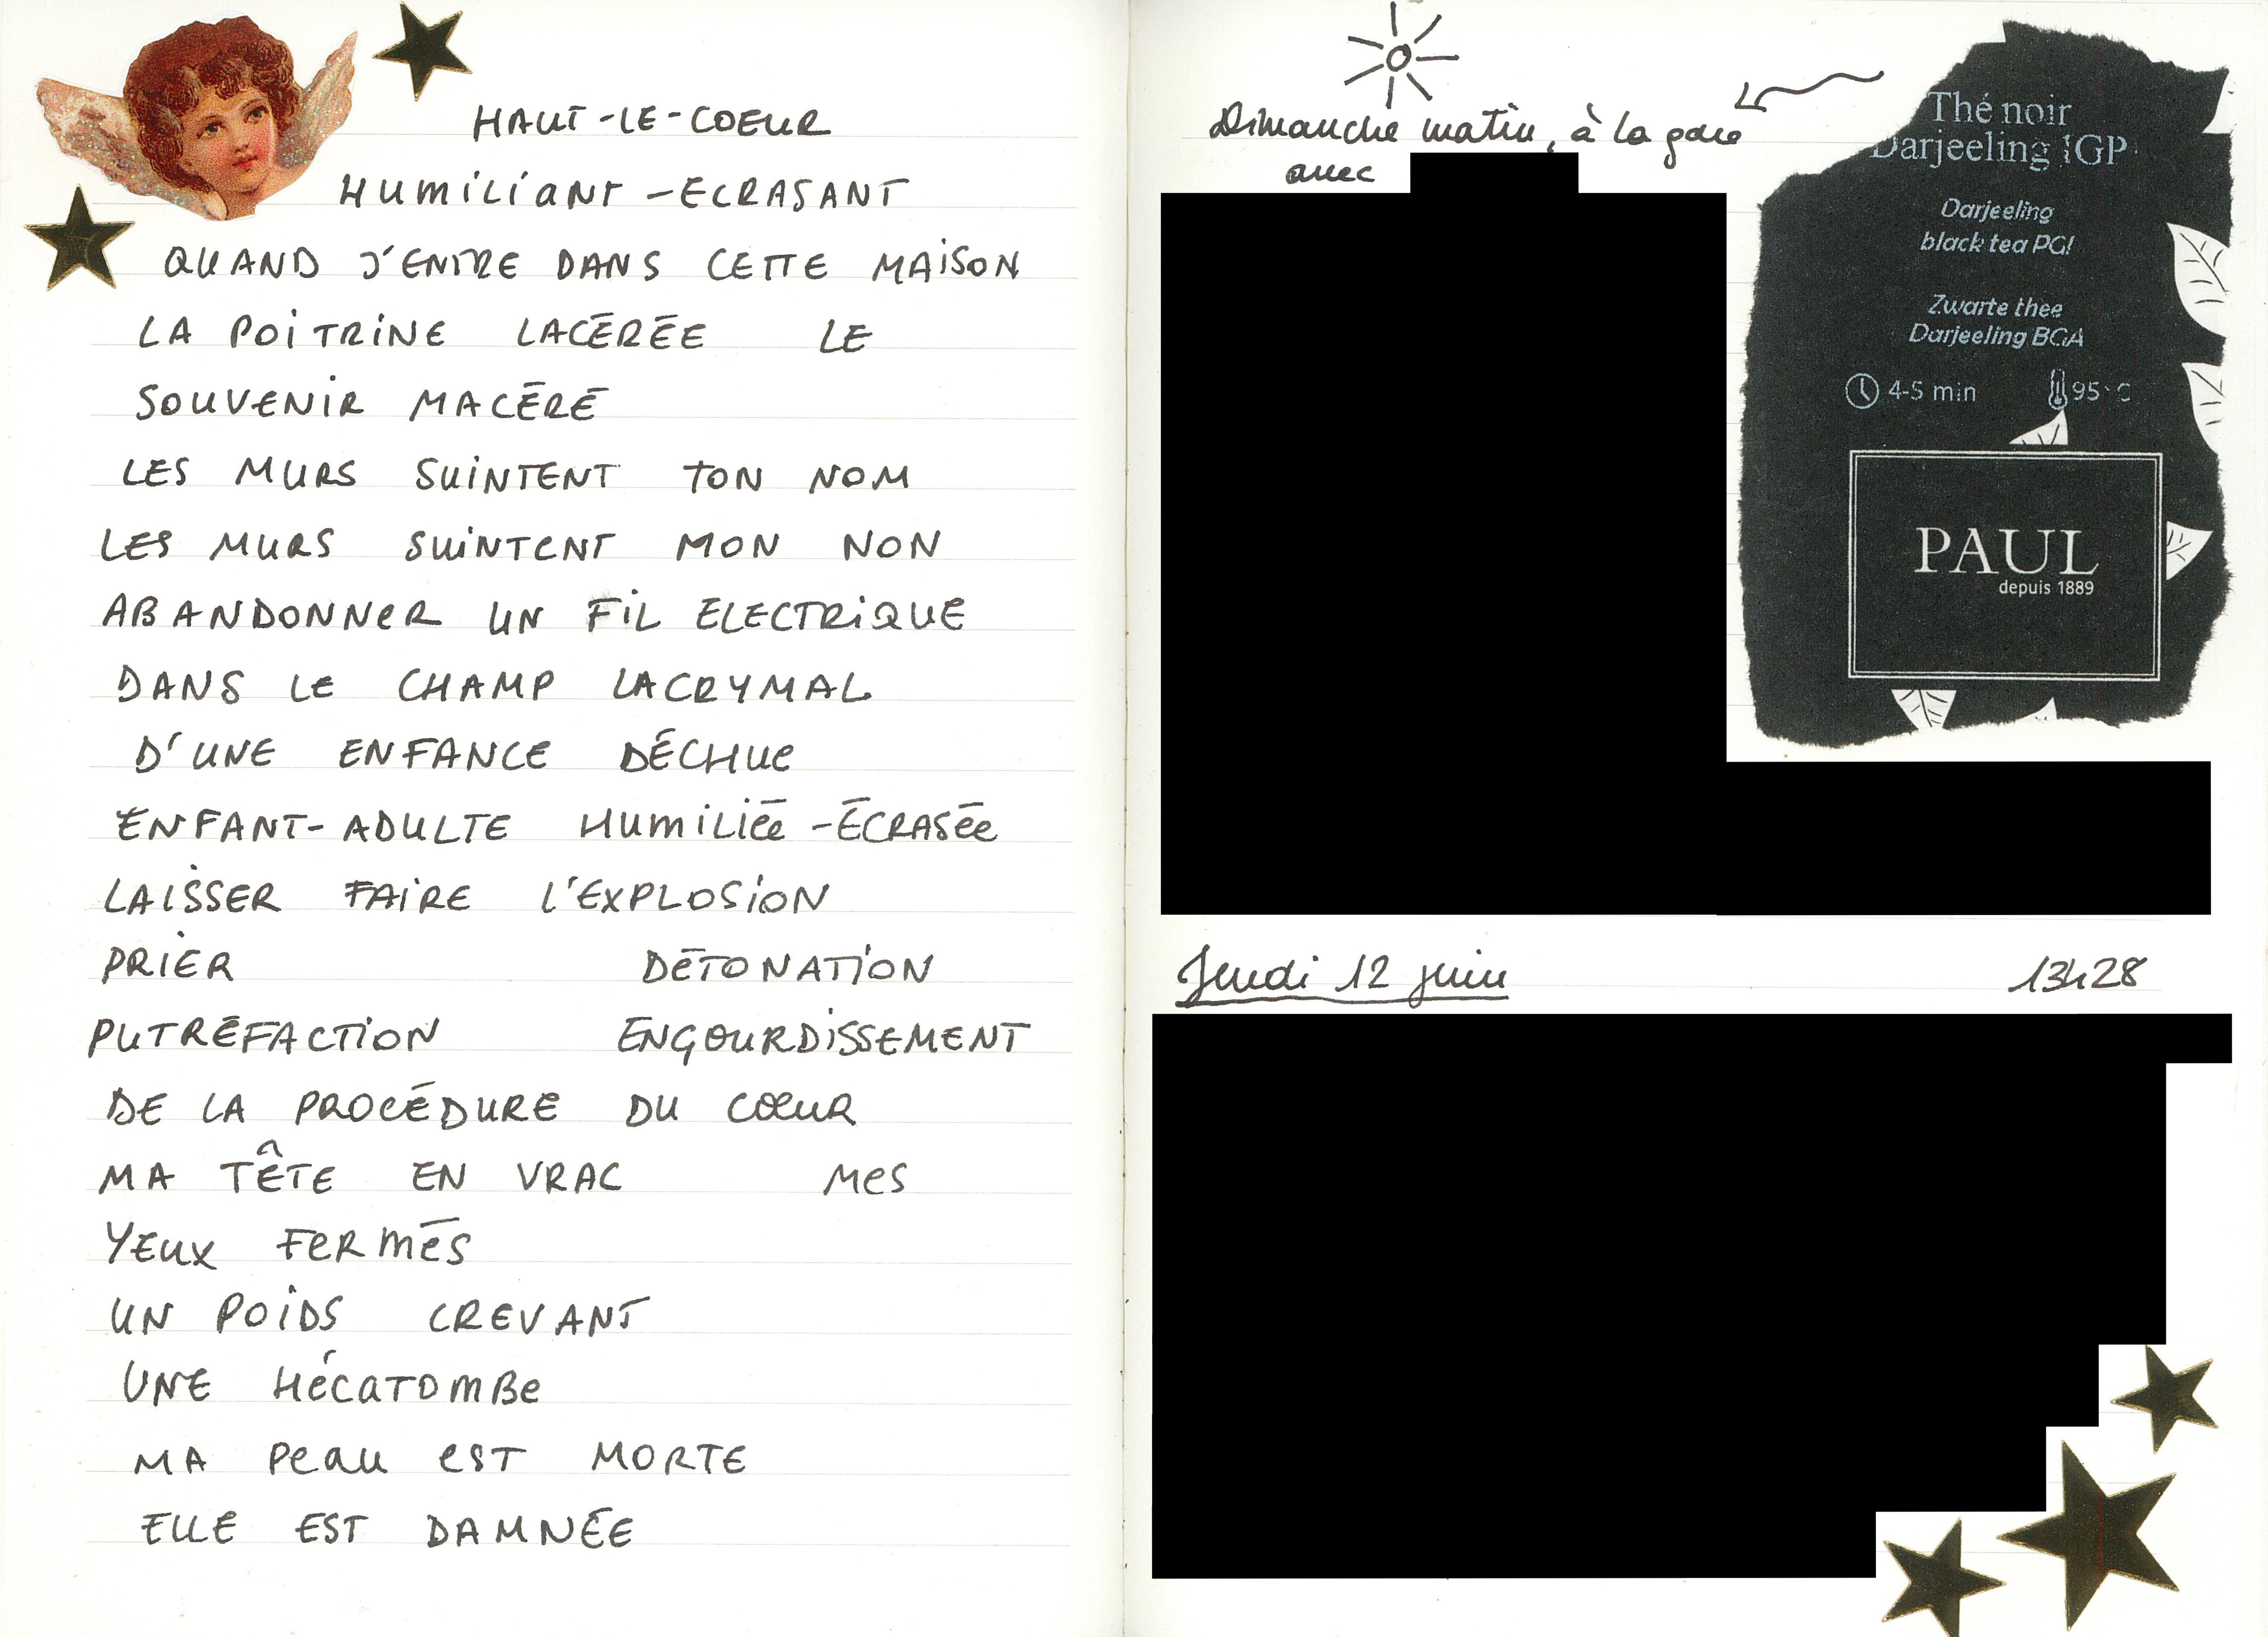 HAUT-LE-COEUR
HUMILIANT-ECRASANT
QUAND J'ENTRE DANS CETTE MAISON
LA POITRINE LACÉRÉE LE
SOUVENIR MACÉRÉ
LES MURS SUINTENT TON NOM
LES MURS SUINTENT MON NON
ABANDONNER UN FIL ELECTRIQUE
DANS LE CHAMP LACRYMAL
D'UNE ENFANCE DÉCHUE
ENFANT-ADULTE HUMILIÉE-ÉCRASÉE
LAISSER FAIRE L'EXPLOSION
PRIER DÉTONATION
PUTRÉFACTION ENGOURDISSEMENT
DE LA PROCÉDURE DU CŒUR
MA TÊTE EN VRAC MES
YEUX FERMÉS
UN POIDS CREVANT
UNE HÉCATOMBE
MA PEAU EST MORTE
ELLE EST DAMNÉE
Dimanche matin, à la gare
avec
Thé noir
Darjeeling IGP
Darjeeling
black tea PGI
Zwarte thee
Darjeeling BGA
4-5 min 95°C
PAUL
depuis 1889
Jeudi 12 juin 13h28